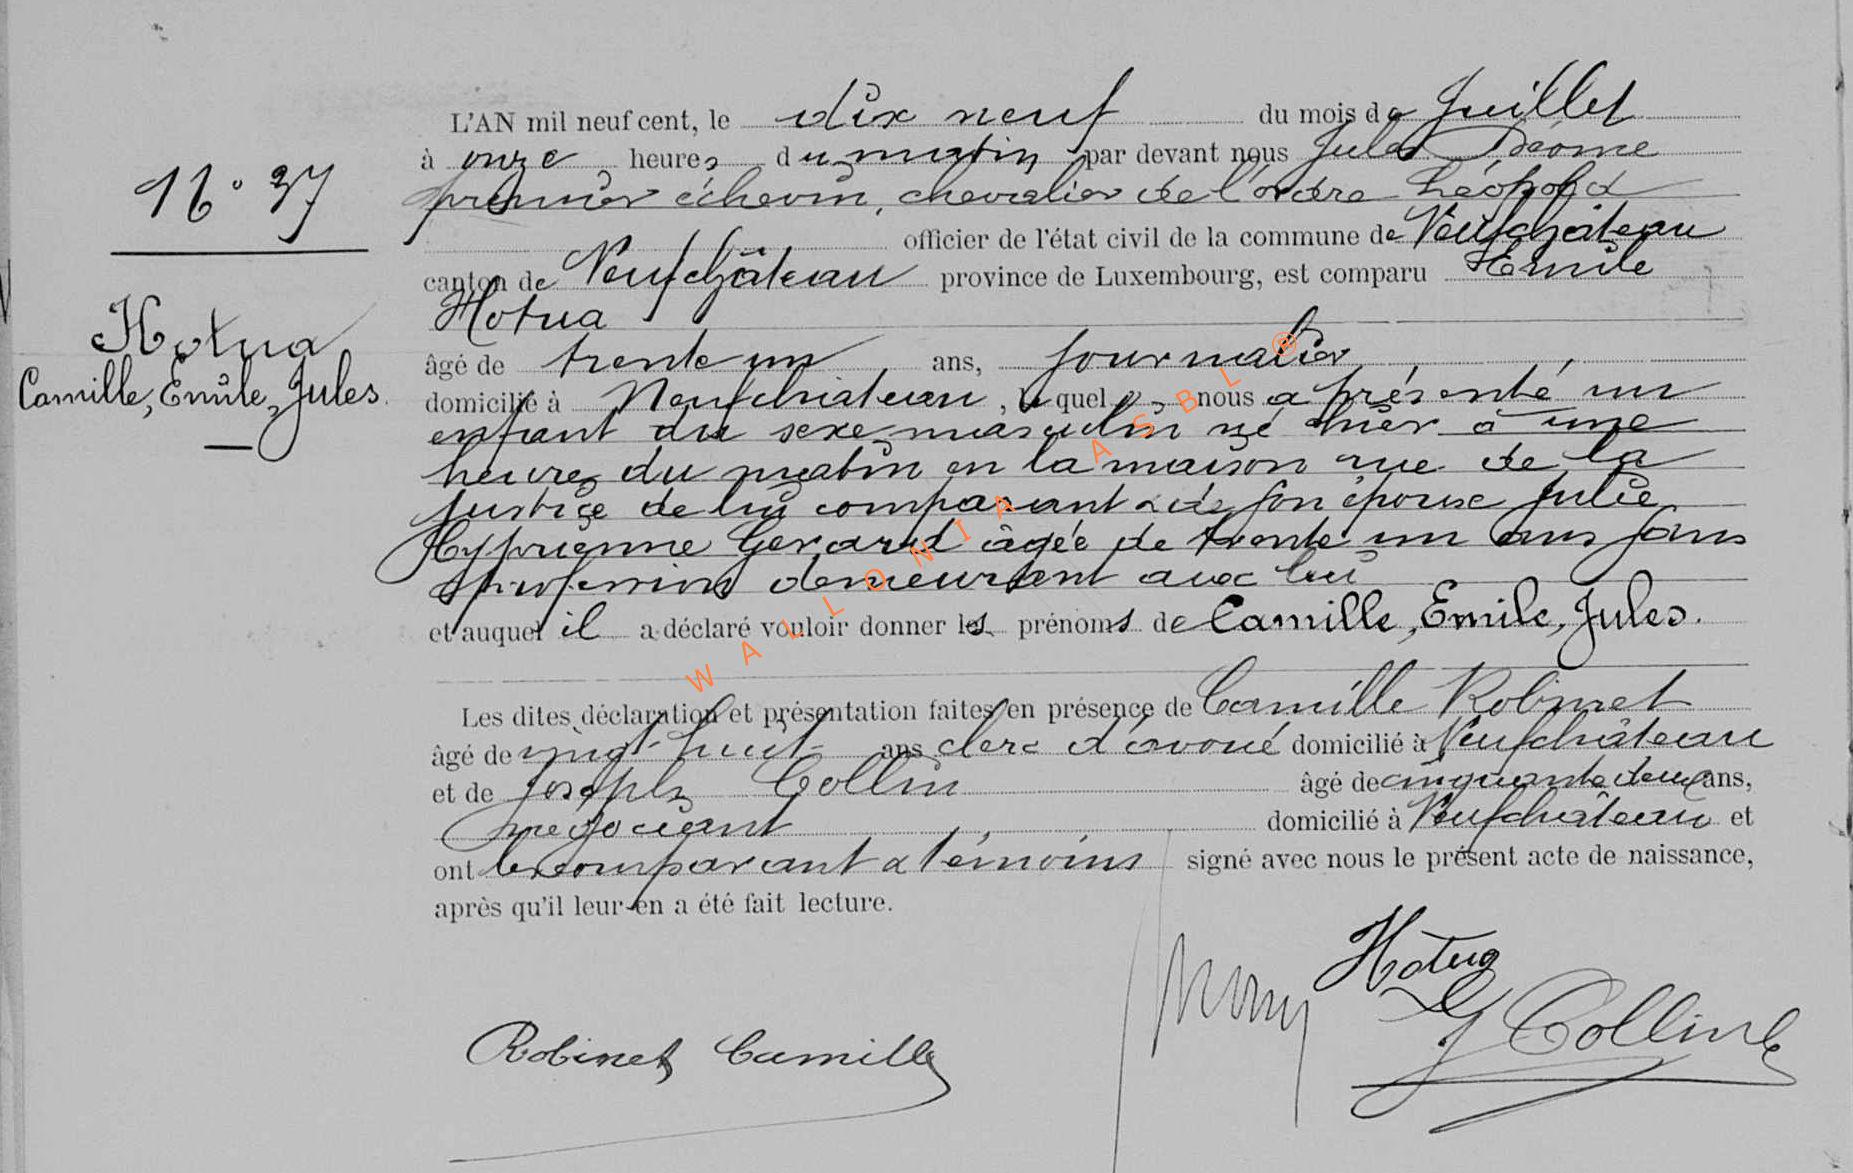 N° 37
Hotua
Camille, Emile, Jules.
L'AN mil neuf cent, le dix neuf du mois de Juillet
à onze heures du matin par devant nous Jules
premier échevin, chevalier de l'ordre Léopold
officier de l'état civil de la commune de Neufchâteau
canton de Neufchâteau province de Luxembourg, est comparu Emile
Hotua
âgé de trente un ans, journalier
domicilié à Neufchâteau, le quel nous a présenté un
enfant du sexe masculin né hier à une
heure du matin en la maison rue de la
justice de lui comparant & de son épouse Julie
Gerard âgée de trente un ans sans
profession demeurant avec lui
et auquel il a déclaré vouloir donner les prénoms de Camille, Emile, Jules.
Les dites déclaration et présentation faites en présence de Camille Robinet
âgé de vingt-huit ans clerc d'avoué domicilié à Neufchâteau
et de Joseph Collin âgé de cinquante deux ans,
négociant domicilié à Neufchâteau et
ont les comparant & témoins signé avec nous le présent acte de naissance,
après qu'il leur en a été fait lecture.
Hotua
J Collin
Robinet Camille
WALLONIA ASBL ®